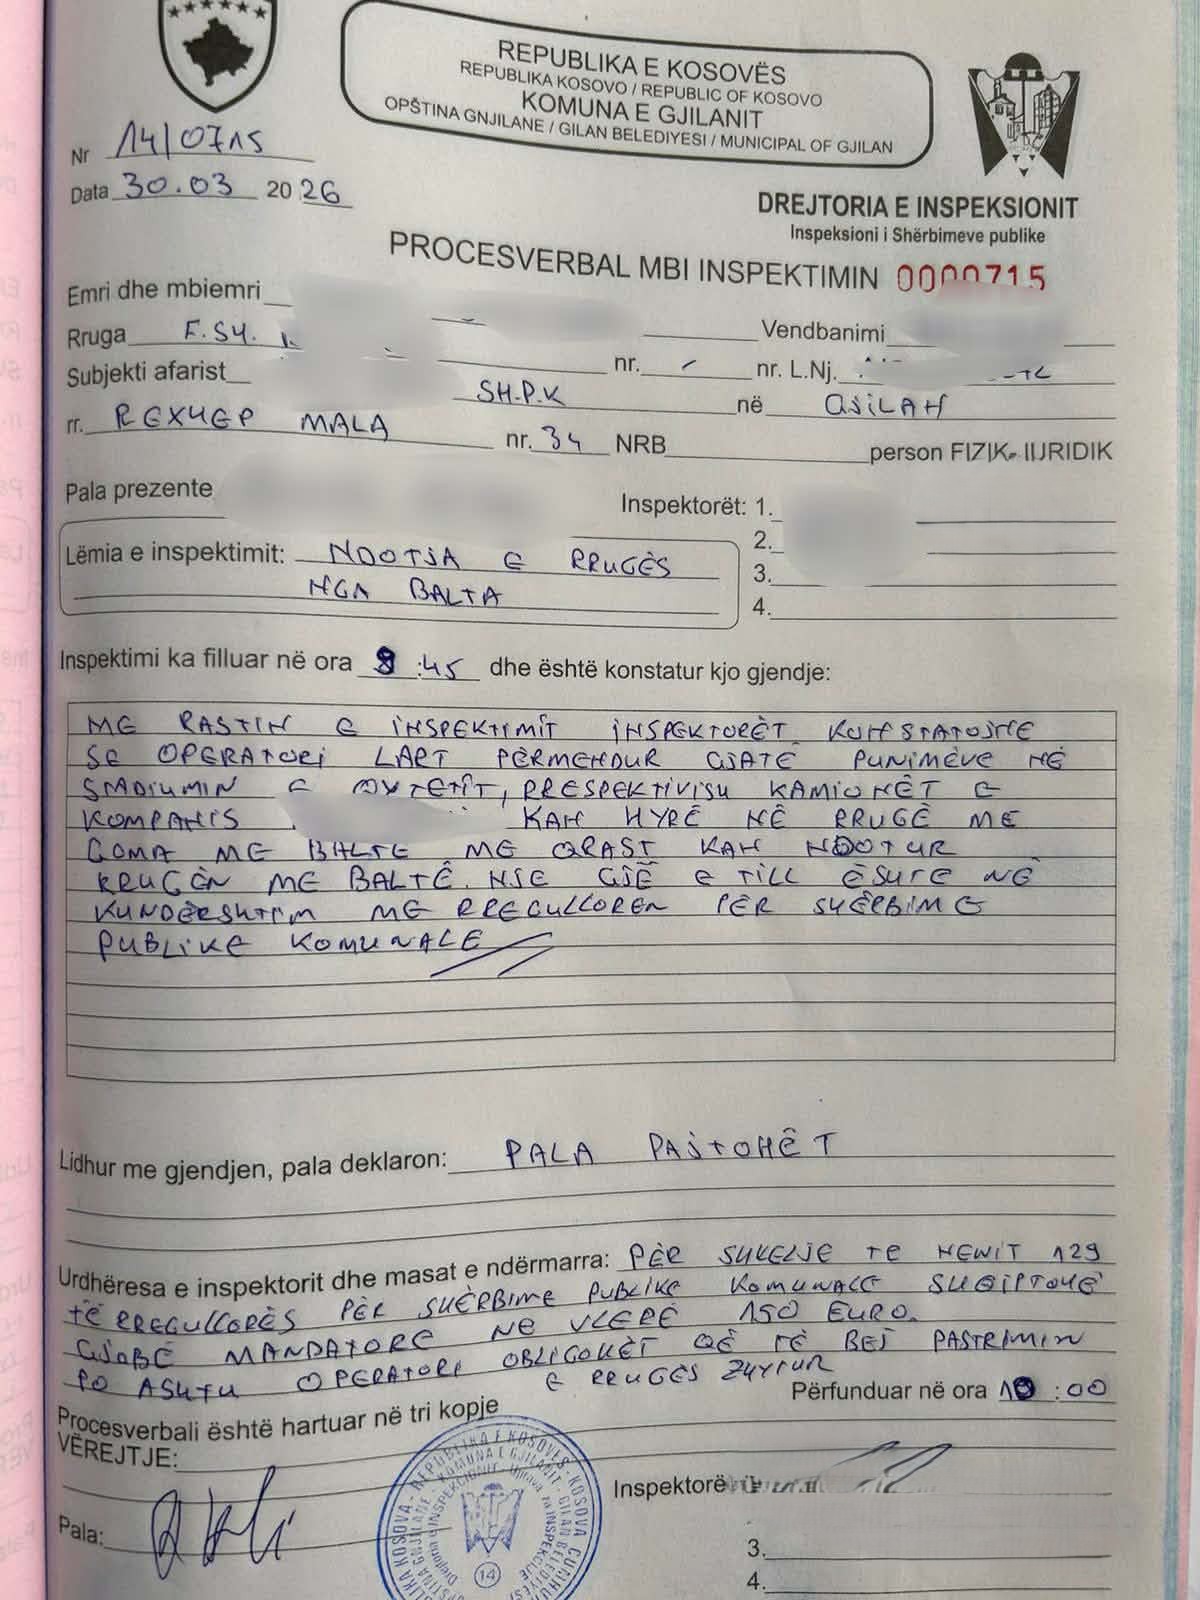 REPUBLIKA E KOSOVËS
REPUBLIKA KOSOVO / REPUBLIC OF KOSOVO
KOMUNA E GJILANIT
OPŠTINA GNJILANE / GILAN BELEDIYESI / MUNICIPAL OF GJILAN
Nr 14/0715
Data 30.03 2026
DREJTORIA E INSPEKSIONIT
Inspeksioni i Shërbimeve publike
PROCESVERBAL MBI INSPEKTIMIN 0000715
Emri dhe mbiemri
Rruga F.SH. Vendbanimi
Subjekti afarist nr. nr. L.Nj.
SH.P.K në GJILAN
rr. REXHEP MALA nr. 34 NRB person FIZIK- JURIDIK
Pala prezente Inspektorët: 1.
2.
Lëmia e inspektimit: NDOTJA E RRUGËS
NGA BALTA
3.
4.
Inspektimi ka filluar në ora 9:45 dhe është konstatur kjo gjendje:
ME RASTIN E INSPEKTIMIT INSPEKTORËT KONSTATOJNE
SE OPERATORI LART PËRMENDUR GJATË PUNIMËVE NË
STADIUMIN E QYTETIT, PRESPEKTIVISH KAMIONËT E
KOMPANIS KAN HYRË NË RRUGË ME
GOMA ME BALTE ME QRAST KAN NDOTUR
RRUGËN ME BALTË. NSE GJË E TILL ËSHTE NË
KUNDËRSHTIM ME RREGULLOREN PËR SHËRBIME
PUBLIKE KOMUNALE
Lidhur me gjendjen, pala deklaron: PALA PAJTOHËT
Urdhëresa e inspektorit dhe masat e ndërmarra: PËR SHKELJE TE NENIT 129
TË RREGULLORËS PËR SHËRBIME PUBLIKE KOMUNALE SHQIPTOHË
GJOBË MANDATORE NE VLERË 150 EURO.
PO ASHTU OPERATORI OBLIGOHËT QË TË BEJ PASTRIMIN
E RRUGËS ZHYTUR
Përfunduar në ora 10:00
Procesverbali është hartuar në tri kopje
VËREJTJE:
Inspektorë
Pala:
3.
4.
14